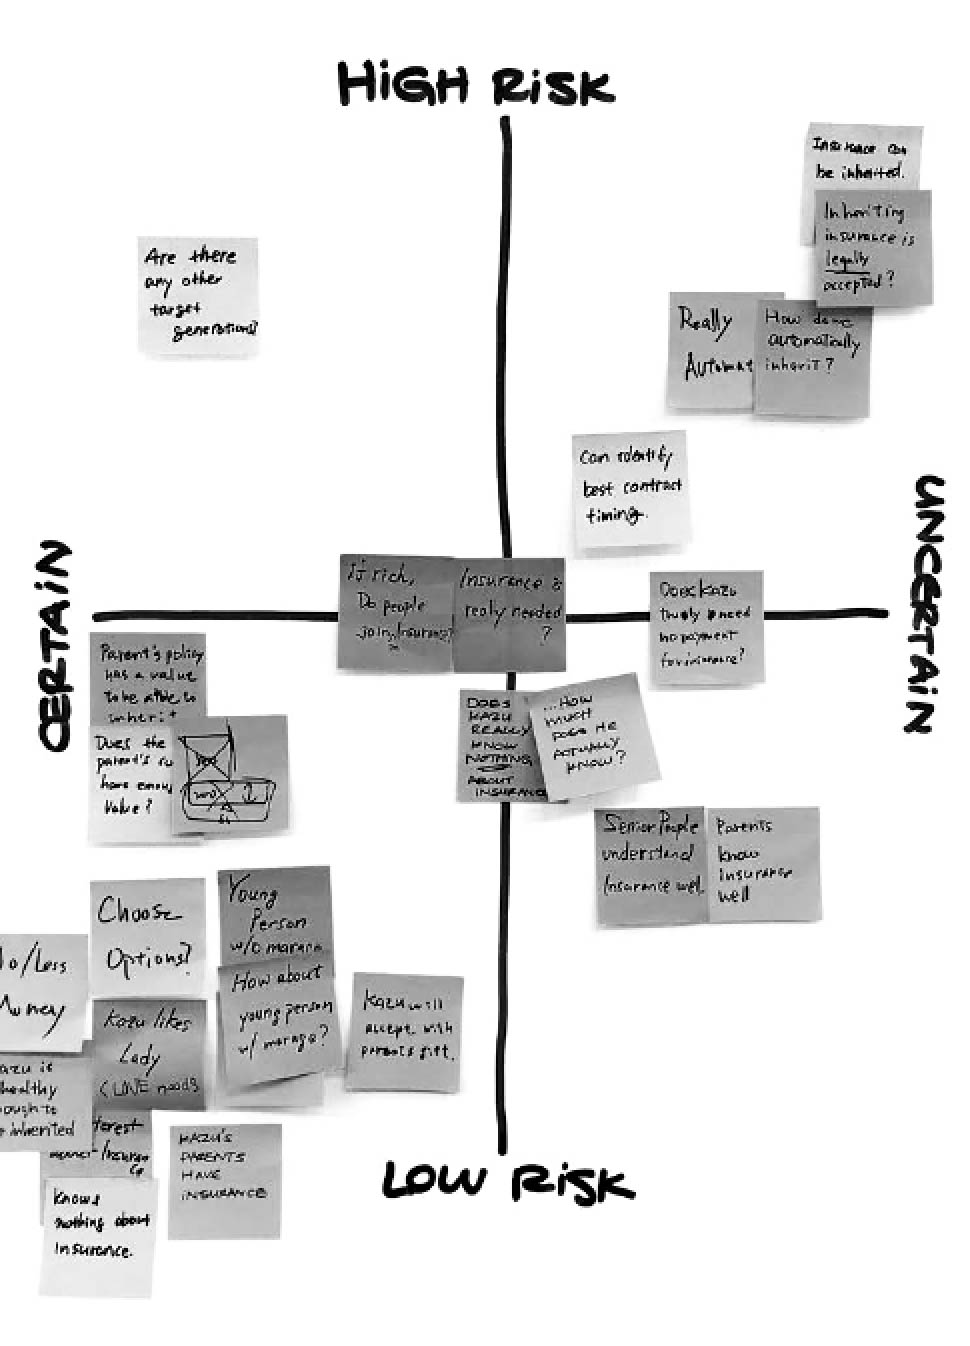 HIGH RISK
Insurance can
be inherited.
Inheriting
insurance is
legally
accepted?
Are there
any other
target
generations?
Really
Automat
How does
automatically
inherit?
Can identify
best contract
timing.
UNCERTAIN
CERTAIN
If rich,
Do people
join insurance?
Insurance is
really needed
?
Does Kazu
truly need
no payment
for insurance?
Parent's policy
has a value
to be able to
inherit
Does the
parent's
have enou
value?
DOES
KAZU
REALLY
KNOW
NOTHING
ABOUT
INSURANC
...HOW
MUCH
DOES HE
ACTUALLY
KNOW?
Senior People
understand
Insurance well.
Parents
know
insurance
well
Choose
Options?
Young
Person
w/o
How about
young person
w/
o/Less
Money
Kazu likes
Lady
(LOVE
Kazu will
accept with
parents gift.
azu is
healthy
ough to
inherited
terest
KAZU'S
PARENTS
HAVE
INSURANCE
Knows
nothing about
Insurance.
LOW RISK